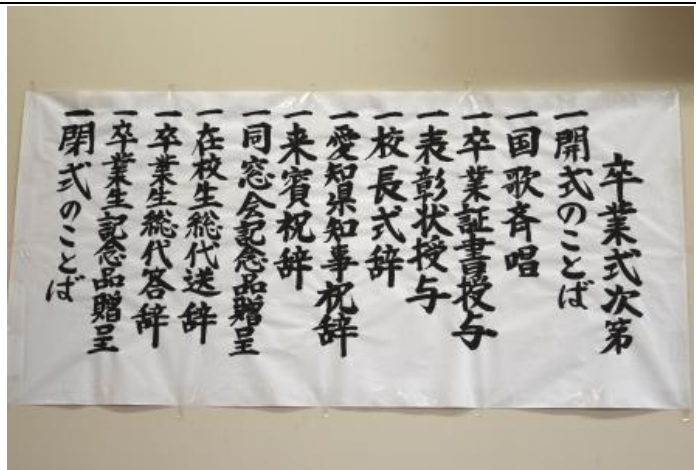 卒業式次第
一開式のことば
一国歌斉唱
一卒業証書授与
一表彰状授与
一校長式辞
一愛知県知事祝辞
一来賓祝辞
一同窓会記念品贈呈
一在校生総代送辞
一卒業生総代答辞
一卒業生記念品贈呈
一閉式のことば